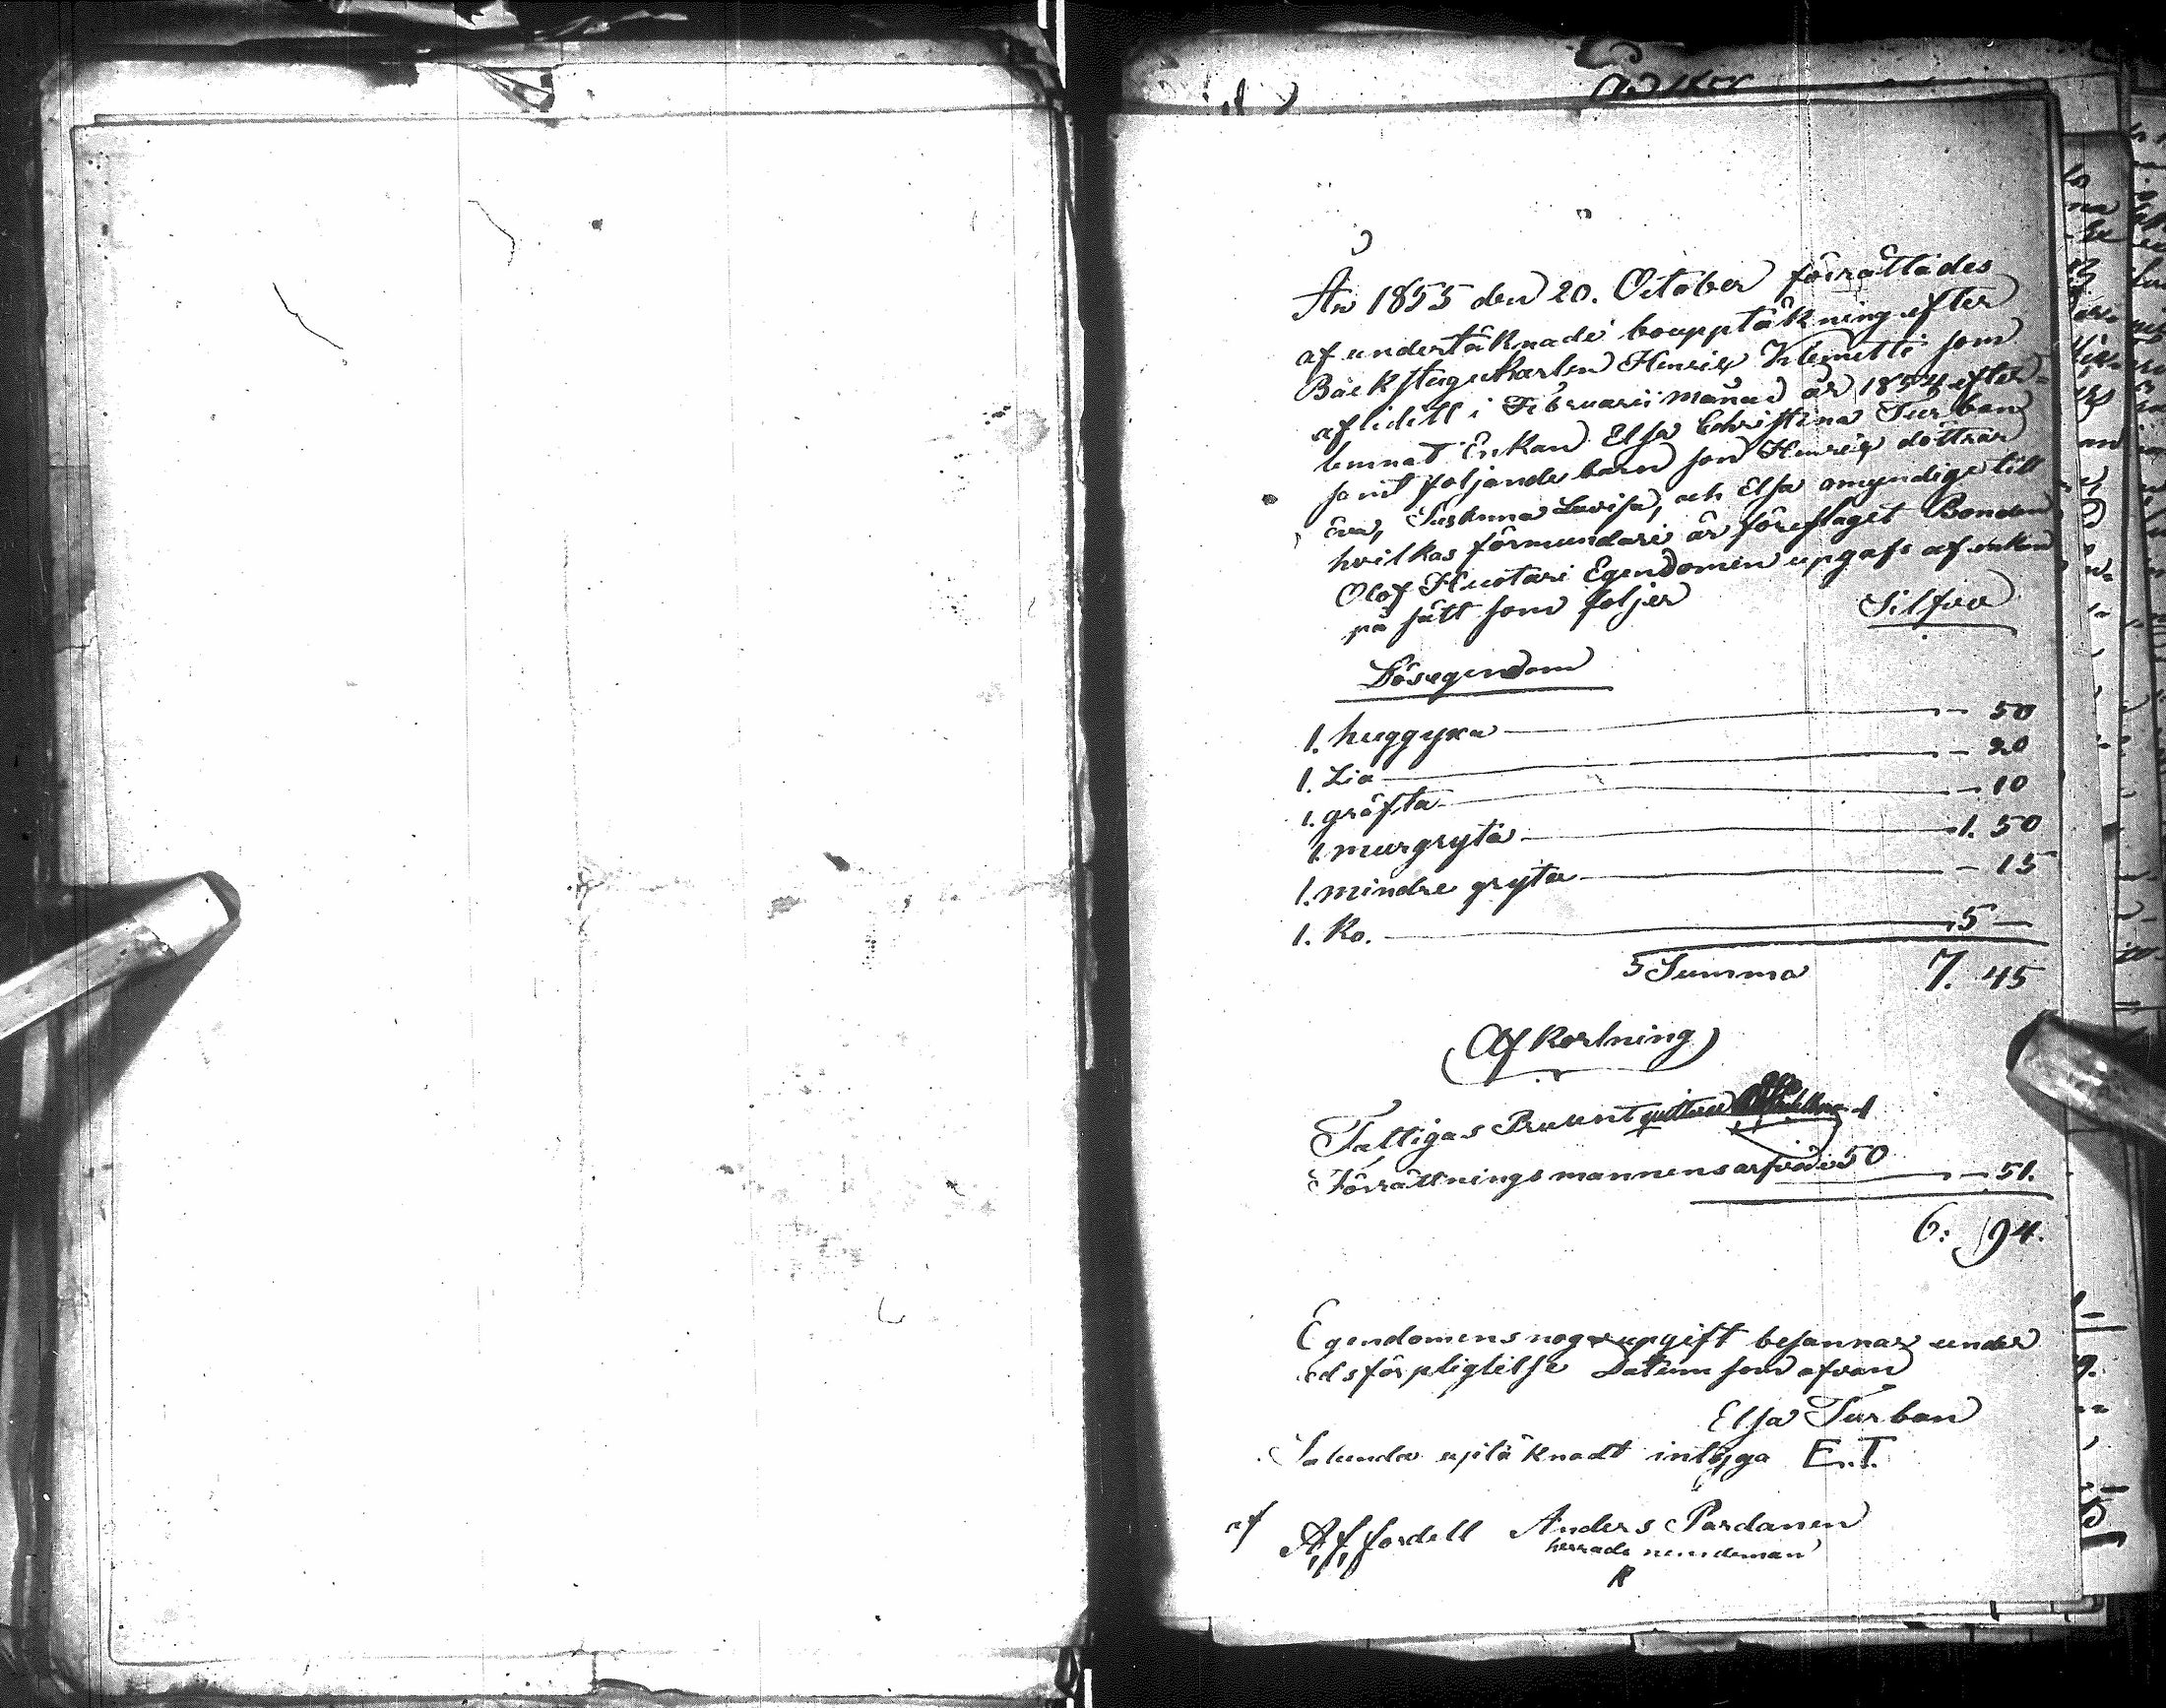 År 1855 den 20. October förrättades
af undertäknade boupptäkning efter
Backstugukarlen Henrix Klemetti som
afliditt i Februarii månad år 1854 efter-
lemnat Enkan Elsa Christina Turban
samt foljande barn son Henrix döttrar
Eva, Susanna Lovisa, och Elsa omyndige till
hvilkas förmundare är föreslaget Bonden
Olof Huotari Egendomen upgafs af enkan
på sätt som foljer Silfver
Lösegendom
1. huggyxa - 50
1. Lia - 20
1. gräfta - 10
1. murgryta 1. 50
1. mindre gryta - 15
1. Ko. 5 —
Summa 7. 45
Afkortning
Fattigas Procent 1
Förrättningsmannens arfvode 50 - 51.
6: 94.
Egendomens noga upgift besannar under
edsförpligtelse Datum som ofvan
Elsa Turban
Salunda uptäknadt intyga E.T.
af Fordell Anders Pardanen
herrads nemdeman